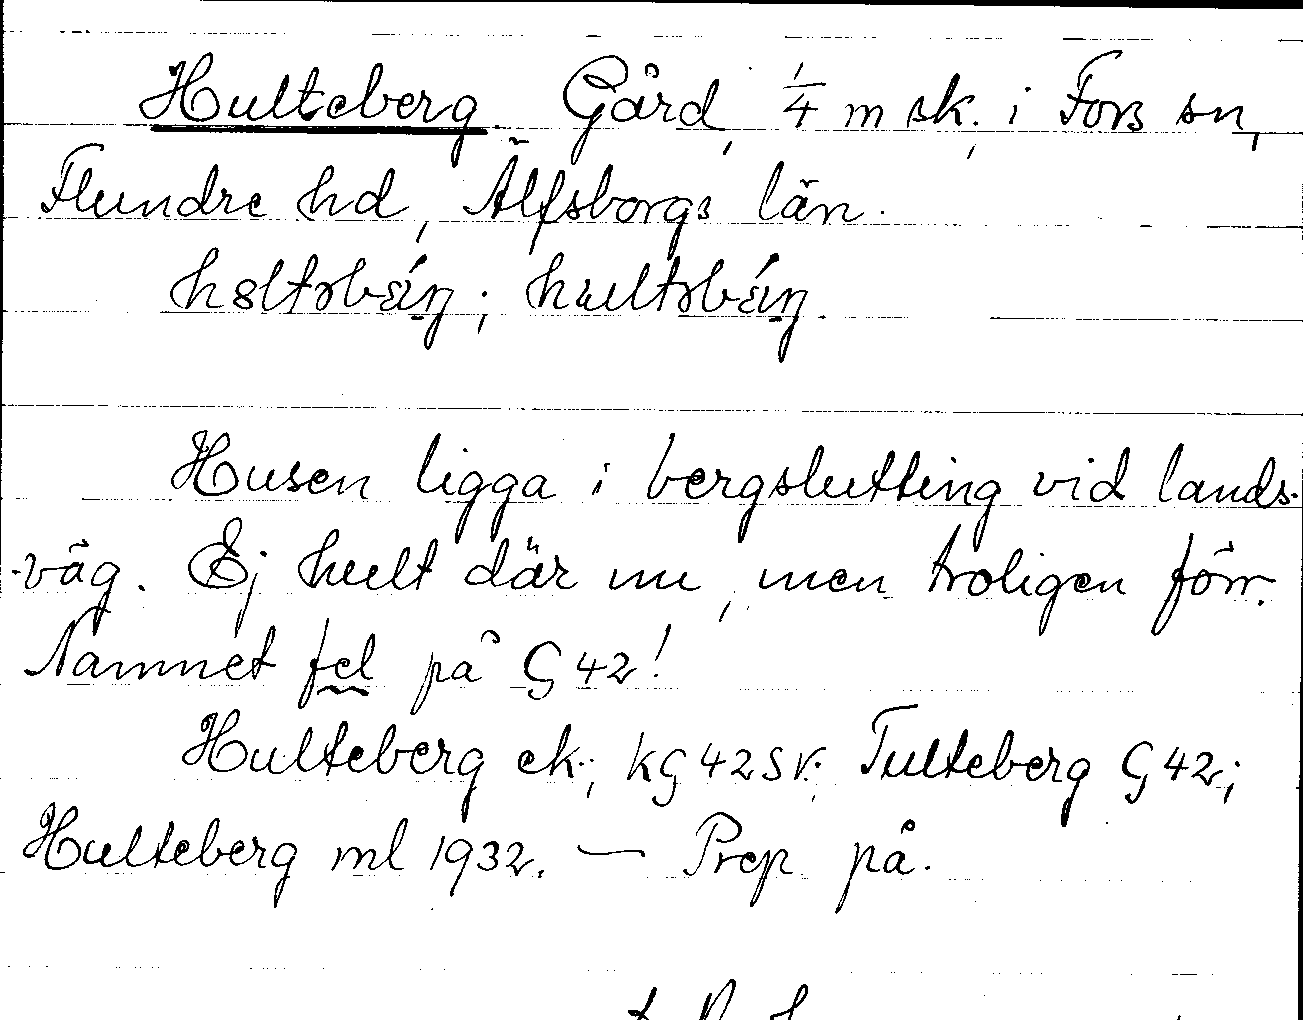 Hulteberg. Gård, 1/4 m sk. i Fors sn,
Flundre hd, Älfsborgs län.
Husen ligga i bergslutting vid lands-
-väg. Ej hult där nu, men troligen förr.
Namnet fel på G 42!
Hulteberg ek.; kG 42 SV; Tulteberg G 42;
Hulteberg ml 1932. — Prep på.